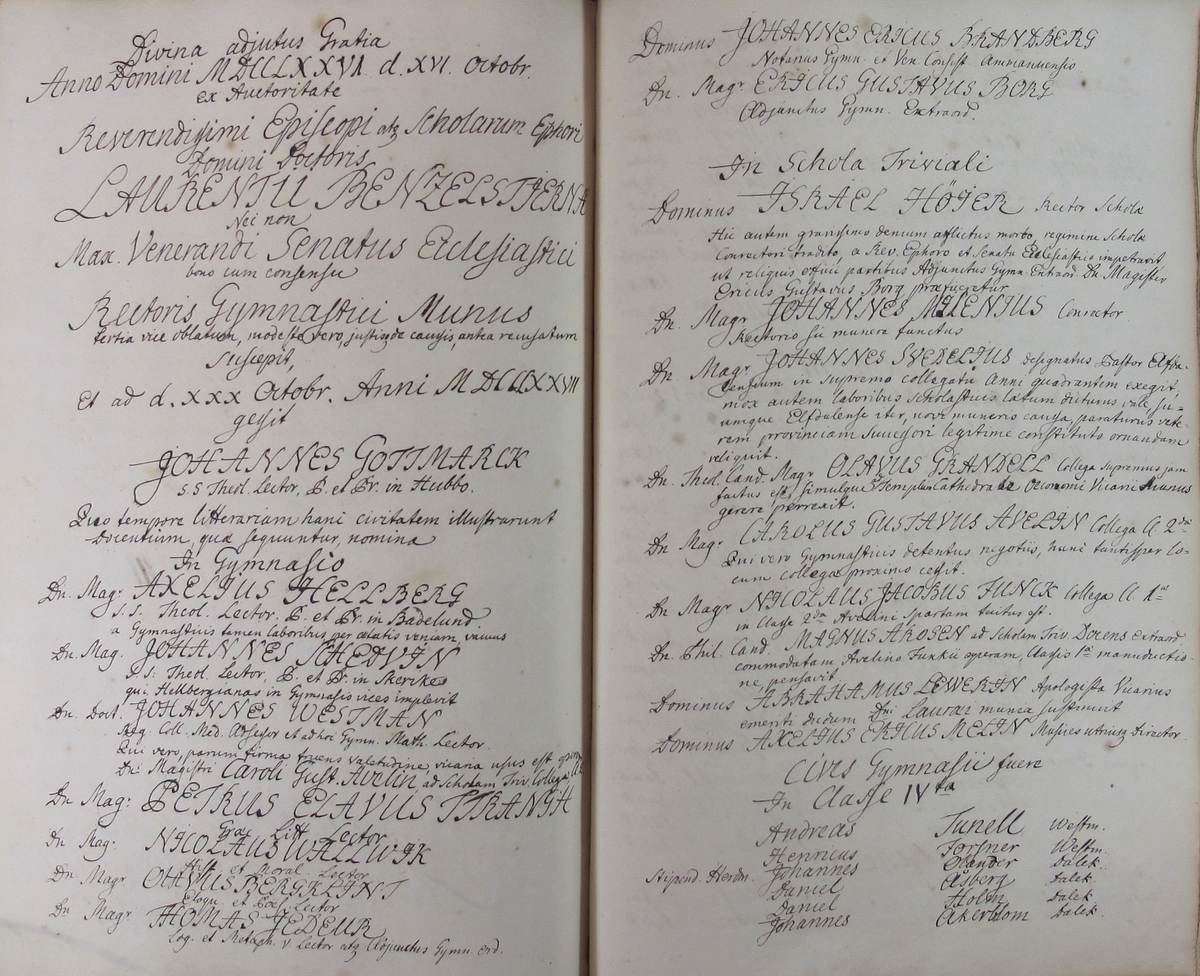 Divina adjutus Gratia
Anno Domini MDCCLXXVI d. XVI. Octobr.
ex Auctoritate
Reverendissimi Episcopi atq Scholarum Ephori
Domini Doctoris
LAURENTII BENZELSTJERNA
Nec non
Max. Venerandi Senatus Ecclesiastici
bono cum consensu
Rectoris Gymnastici Munus
tertia vice oblatum, modeste vero, justisqe causis, antea recusatum
Suscepit,
Et ad d. XXX Octobr. Anni MDCCLXXVII
gessit
JOHANNES GOTTMARCK
S.S Theol. Lector, P. et Pr. in Hubbo.
Quo tempore litterariam hanc civitatem illustrarunt
Docentium, quæ sequuntur, nomina
In Gymnasio
Dn. Mag: AXELIUS HELLBERG
S.S. Theol. Lector, P. et Pr. in Badelund.
a Gymnasticis tamen laboribus per ætatis veniam, vacuus
Dn. Mag. JOHANNES SCHEDVIN
S.S. Theol. Lector, P. et Pr. in Skerike
qui Hellbergianas in Gymnasio vices implevit
Dn. Doct. JOHANNES WESTMAN
Reg. Coll. Med. Adsessor et adhoc Gymn. Math. Lector.
Qui vero, parum firma fruens valetudine, vicaria usus est opera
Dni Magistri Caroli Gust. Avelin, ad Scholam Triv. Collega
Dn Mag: PETRUS ELAVUS STRANGH
Græc Litt. Lector
Dn Mag: NICOLAUS WALLWIK
Hist. et Moral. Lector
Dn Magr OLAVUS BERGKLINT
Eloqu. et Poes Lector
Dn Magr THOMAS JEDEUR
Log. et Metaph. V. Lector atq Adjunctus Gymn. ord.
Dominus JOHANNES ERICUS BRANDBERG
Notarius Gymn. et Ven. Consist. Ammanuensis
Dn. Magr ERICUS GUSTAVUS BORG
Adjunctus Gymn. Extraord.
In Schola Triviali
Dominus ISRAEL HÖIJER Rector Scholæ
Hic autem gravissimo denium afflictus morbo, regimine Scholæ
Conrectori tradito, a Rev. Ephoro et Senatu Ecclesiastico impetravit
ut reliquis officii partibus Adjunctus Gymn. Extraord. Dn Magister
Ericus Gustavus Borg præficeretur
Dn. Magr JOHANNES MELENIUS Conrector
Rectorio sic munere functus
Dn. Magr JOHANNES SVEDELIUS designatus Pastor Elfda-
lensium in Supremo collegatu Anni quadrantem exegit,
mox autem laboribus Scholasticis lætum dicturus vale, su-
umque Elfdalense iter, novi muneris causa, paraturus vete-
rem provinciam Successori legitime constituto ornandam
reliquit.
Dn. Theol. Cand. Magr OLAVUS GRANDELL Collega Supremus jam
factus est, simulque Templi Cathedralis Oeconomi Vicarii Munus
gerere perrexit.
Dn. Mag: CAROLUS GUSTAVUS AVELIN Collega Cl 2dæ
Qui vero Gymnasticis detentus negotiis, hunc tantisper lo-
cum collegæ proximo cessit.
Dn Magr NICOLAUS JACOBUS FUNCK Collega Cl 1æ
in Classe 2da Avelini Spartam tuitus est.
Dn. Phil. Cand. MAGNUS AROSEN ad Scholam Triv. Docens extraord
commodatam, Avelino Funkii operam, Classis 1æ manuductio-
ne, pensavit
Dominus ABRAHAMUS LEWERIN Apologista Vicarius
emeriti dudum Dni Lauræi munia sustinuit
Dominus AXELIUS ERICUS MELIN Musices utriusq Director.
Cives Gymnasii fuere
In Classe IVta
Andreas Tunell Westm.
Henricus Forsner Westm.
Johannes Olander Dalek.
Stipend. Herdn. Daniel Asberg Dalek
Daniel Holm Dalek
Johannes Akerblom Dalek.